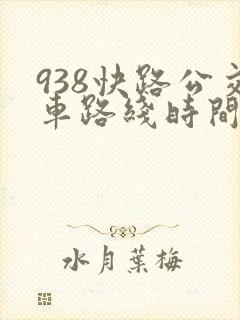 938快路公交
車路綫時間
水月葉梅